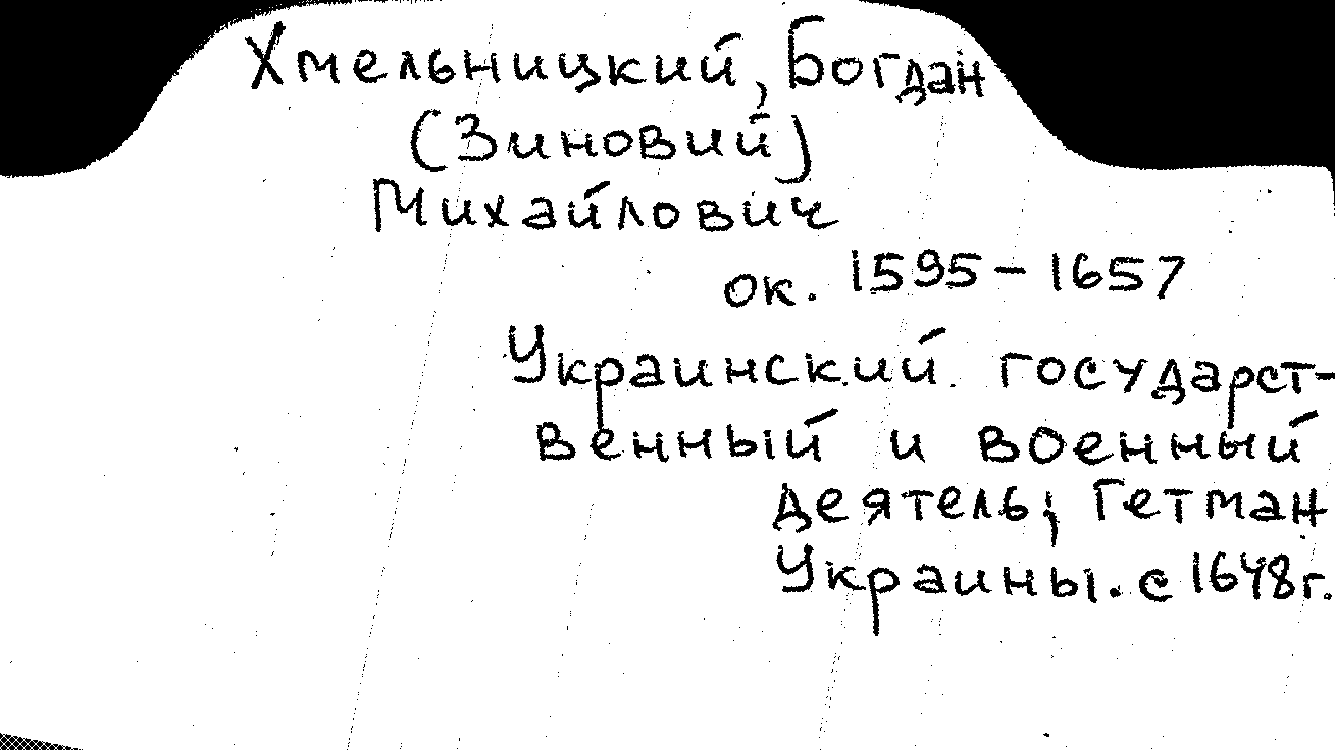 Хмельницкий, Богдан
(Зиновий)
Михайлович
ок. 1595-1657
Украинский государст-
венный и военный
деятель; Гетман
Украины. с 1648г.